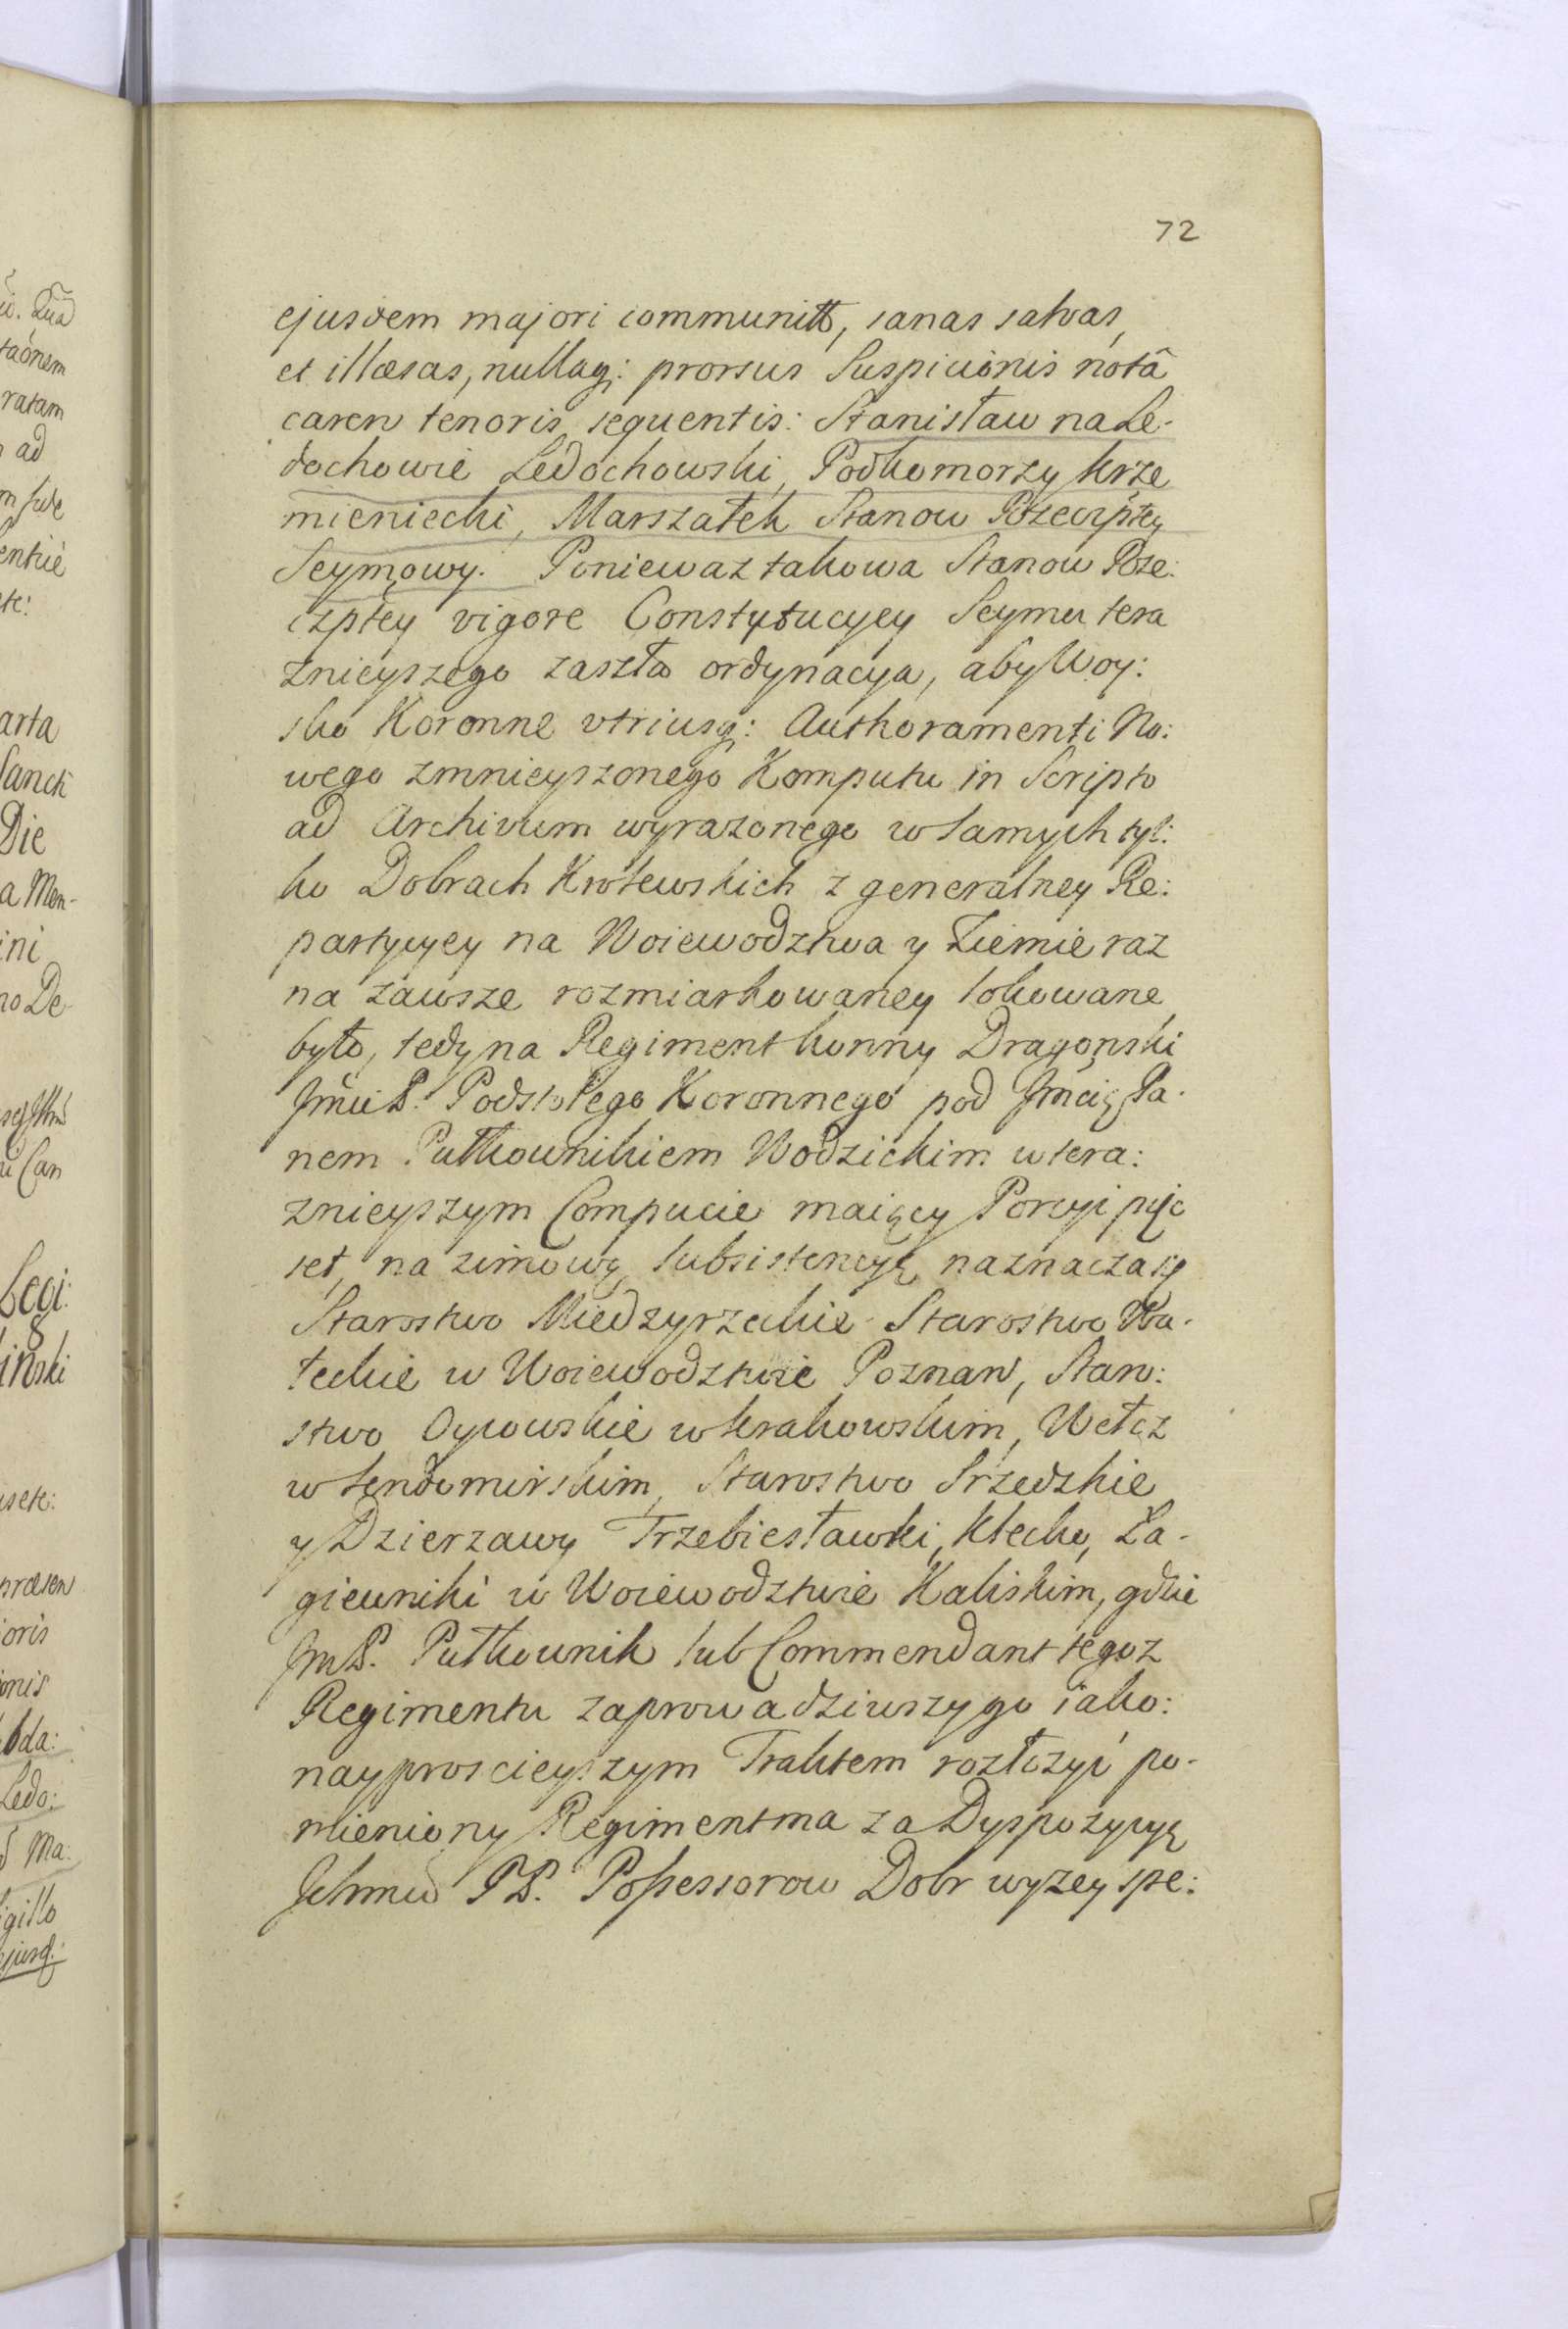 72
ejusdem majori communitt, sanas salvas,
et illæsas, nullaq: prorsus Suspicionis notâ
caren tenoris sequentis: Stanisław na Le-
dochowie Ledochowski, Podkomorzy krze
mieniecki, Marszałek Stanow Rzeczptey
Seymowy. Poniewaz takowa Stanow Rze:
czptey vigore Constytucyey Seymu tera
znieyszego zaszła ordynacya, aby Woy:
sko Koronne utriusq: Authoramenti No:
wego zmnieyszonego Komputu in Scripto
ad Archivum wyrazonego w samych tyl:
ko Dobrach Krolewskich z generalney Re:
partycyey na Woiewodztwa y Ziemie raz
na zawsze rozmiarkowaney lokowane
było, tedy na Regiment konny Dragonski
Jmci P. Podstolego Koronnego pod Jmcią Pa-
nem Pułkownikiem Wodzickim w tera:
znieyszym Compucie maiący Porcyi pięc
set, na zimową subsistencyą naznacza się
Starostwo Miedzyrzeckie Starostwo Wa-
łeckie w Woiewodztwie Poznan, Staro:
stwo Oycowskie w krakowskim, Wełcz
w Sendomirskim, Starostwo Srzedzkie
y Dzierzawy Trzebiesławki, Klecko, Ła-
giewniki w Woiewodztwie Kaliskim, gdzie
Jm P. Pułkownik lub Commendant tegoz
Regimentu zaprowadziwszy go iako:
nayproscieyszym Traktem rozłozyć po-
mieniony Regiment ma za Dyspozycyą
Ichmciow PP. Possessorow Dobr wyzey spe: